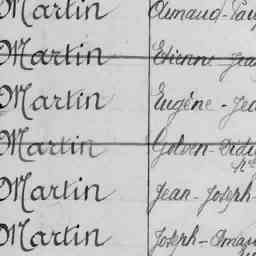 Martin Armand-Pau
Martin Etienne Jea
Martin Eugène-Jea
Martin Didi
Martin Jean-Joseph-
Martin Joseph-Amau